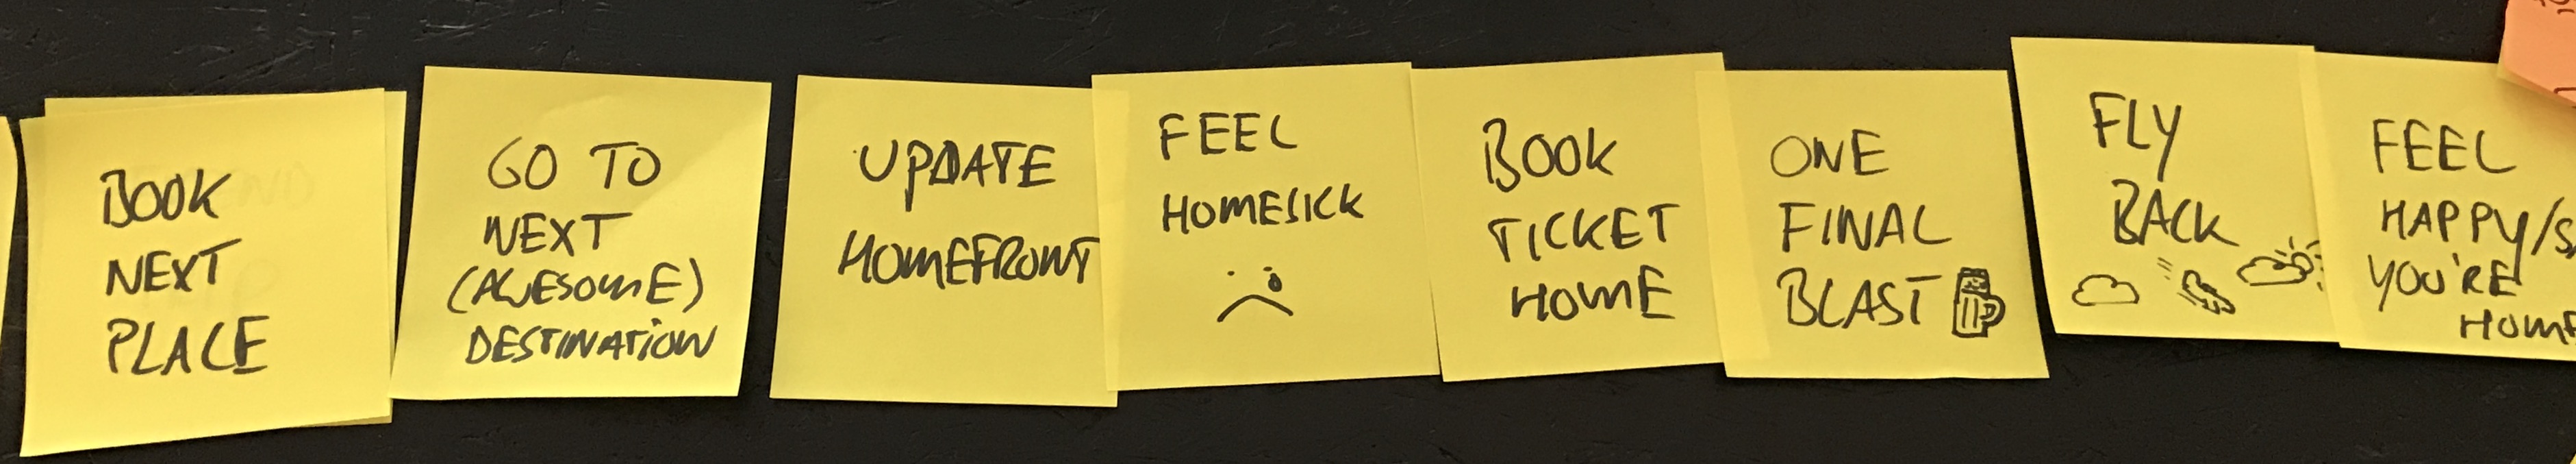 BOOK
NEXT
PLACE
GO TO
NEXT
(AWESOME)
DESTINATION
UPDATE
HOMEFRONT
FEEL
HOMESICK
BOOK
TICKET
HOME
ONE
FINAL
BLAST
FLY
BACK
FEEL
HAPPY/S
YOU'RE
HOME